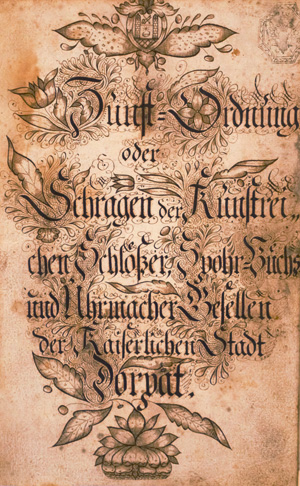 Zunft=Ordnung
oder
Schragen der Kunstrei„
chen Schlößer, Spohr-Büchs
und Uhrmacher Gesellen
der Kaiserlichen Stadt
Dorpat.